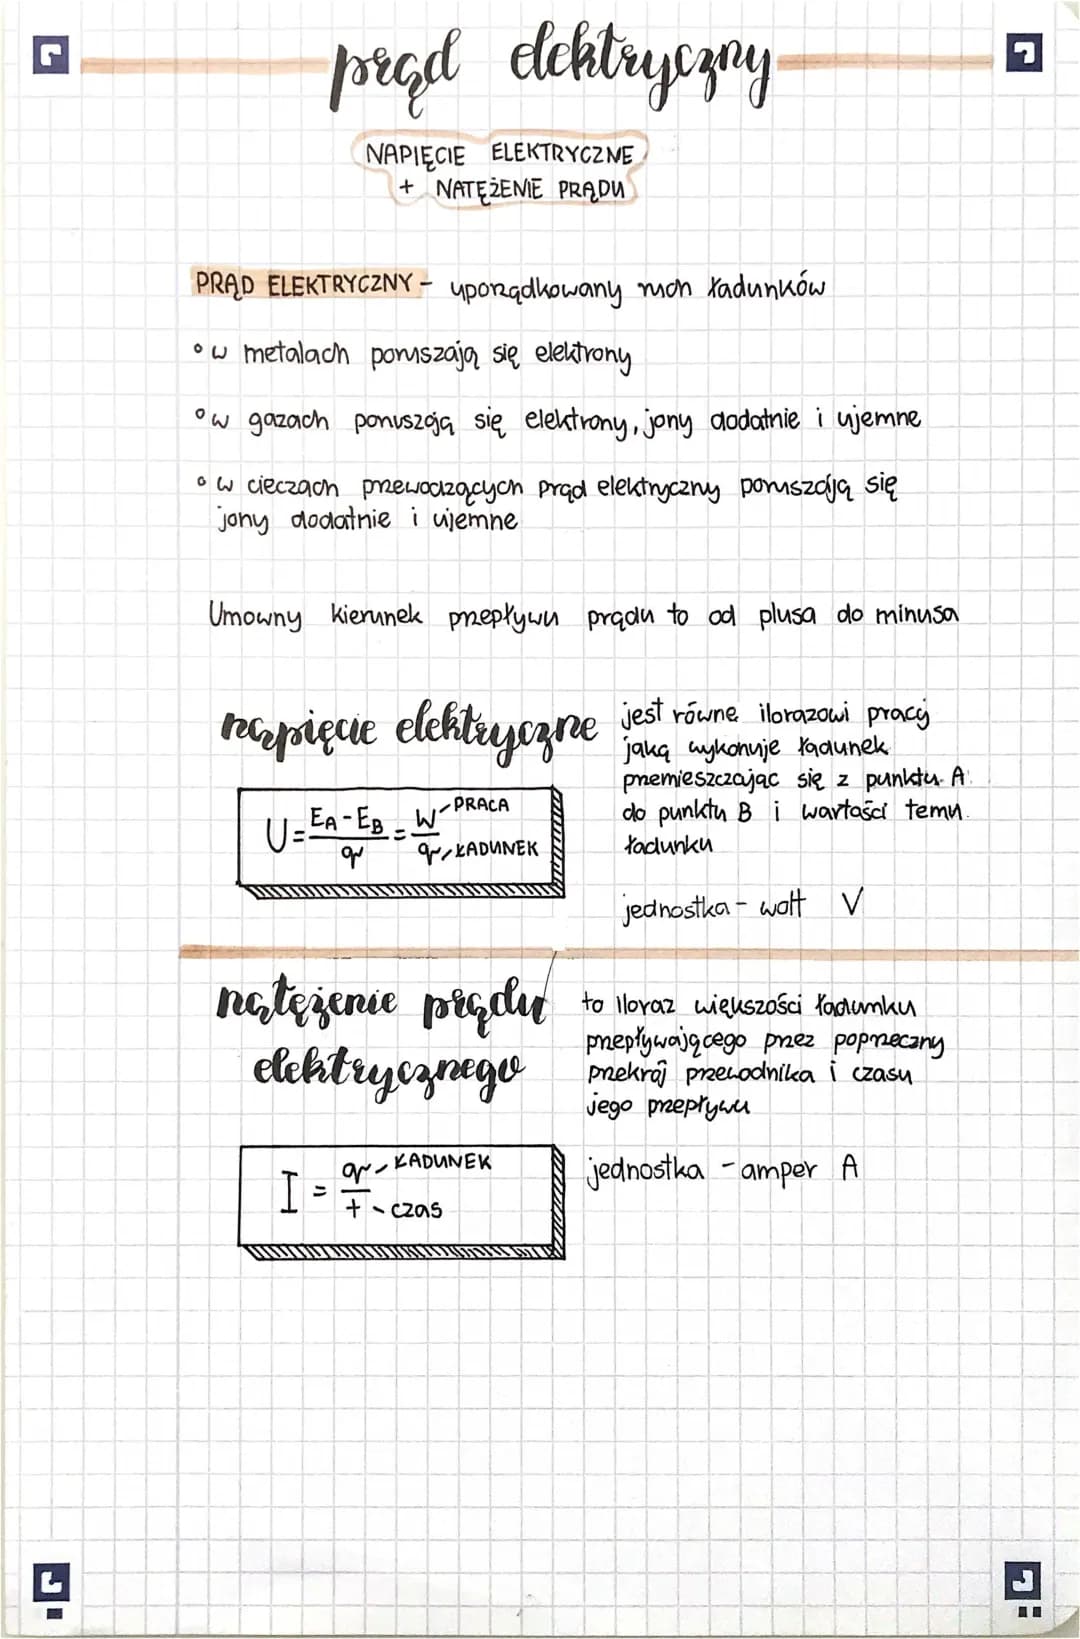 prąd elektryczny
NAPIĘCIE ELEKTRYCZNE
+ NATĘŻENIE PRĄDU
PRĄD ELEKTRYCZNY - uporządkowany ruch ładunków
• w metalach poruszają się elektrony
• w gazach poruszają się elektrony, jony dodatnie i ujemne
• w cieczach przewodzących prąd elektryczny poruszają się
jony dodatnie i ujemne
Umowny kierunek przepływu prądu to od plusa do minusa
napięcie elektryczne
jest równe ilorazowi pracy
jaką wykonuje ładunek
przemieszczając się z punktu A
do punktu B i wartości temu
ładunku
U = (EA - EB)/q = W/q
PRACA
ŁADUNEK
jednostka - wolt V
natężenie prądu
elektrycznego
to iloraz większości ładunku
przepływającego przez poprzeczny
przekrój przewodnika i czasu
jego przepływu
I = q/t
ŁADUNEK
czas
jednostka - amper A